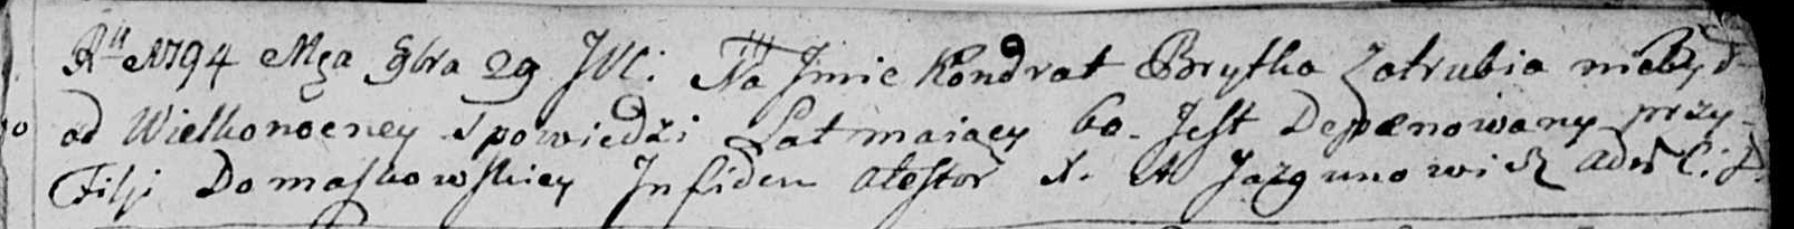 Ru 1794 Mca 9bra 29 JW: Na Jmie Kondrat Brytka zatrubia nie Był
od Wielkonocney Spowiedzi Lat maiący 60. Jest Depœnowany przy-
Filji Domaszkowskiey Jn fidem atestor X. M Jazgunowicz Adm C: D.